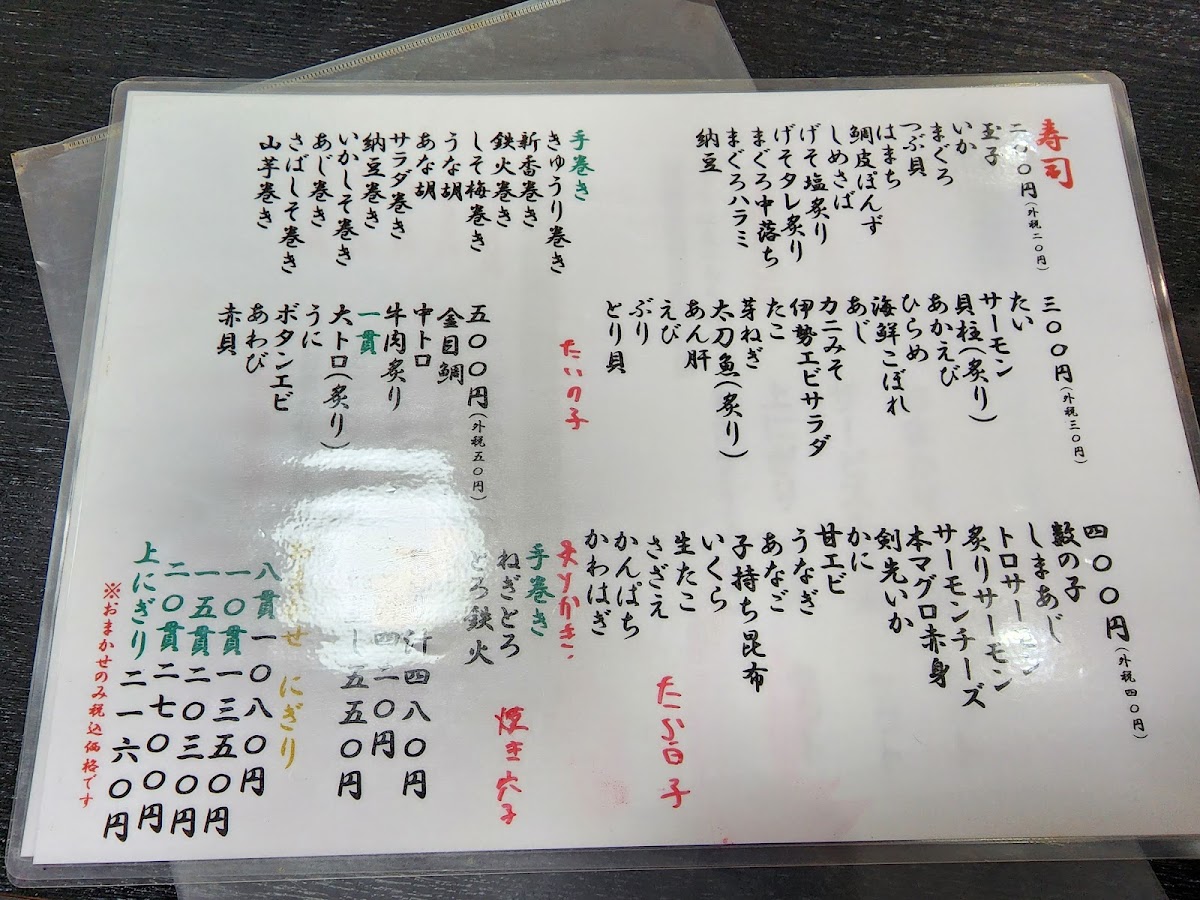 寿司
二〇〇円(外税二〇円)
玉子
いか
まぐろ
つぶ貝
はまち
鯛皮ぽんず
しめさば
げそ塩炙り
げそタレ炙り
まぐろ中落ち
まぐろハラミ
納豆
手巻き
きゅうり巻き
新香巻き
鉄火巻き
しそ梅巻き
うな胡
あな胡
サラダ巻き
納豆巻き
いかしそ巻き
あじ巻き
さばしそ巻き
山芋巻き
三〇〇円(外税三〇円)
たい
サーモン
貝柱(炙り)
あかえび
ひらめ
海鮮こぼれ
あじ
カニみそ
伊勢エビサラダ
たこ
芽ねぎ
太刀魚(炙り)
あん肝
えび
ぶり
とり貝
たいの子
五〇〇円(外税五〇円)
金目鯛
中トロ
牛肉炙り
一貫
大トロ(炙り)
うに
ボタンエビ
あわび
赤貝
四〇〇円(外税四〇円)
数の子
しまあじ
トロサーモン
炙りサーモン
サーモンチーズ
本マグロ赤身
剣先いか
かに
甘エビ
うなぎ
あなご
子持ち昆布
いくら
生たこ
さざえ
かんぱち
かわはぎ
たら白子
手巻き
ねぎとろ
とろ鉄火
焼き穴子
汁四八〇円
四二〇円
し五五〇円
せ にぎり
八貫一〇八〇円
一〇貫一三五〇円
一五貫二〇三〇円
二〇貫二七〇〇円
上にぎり二一六〇円
※おまかせのみ税込価格です